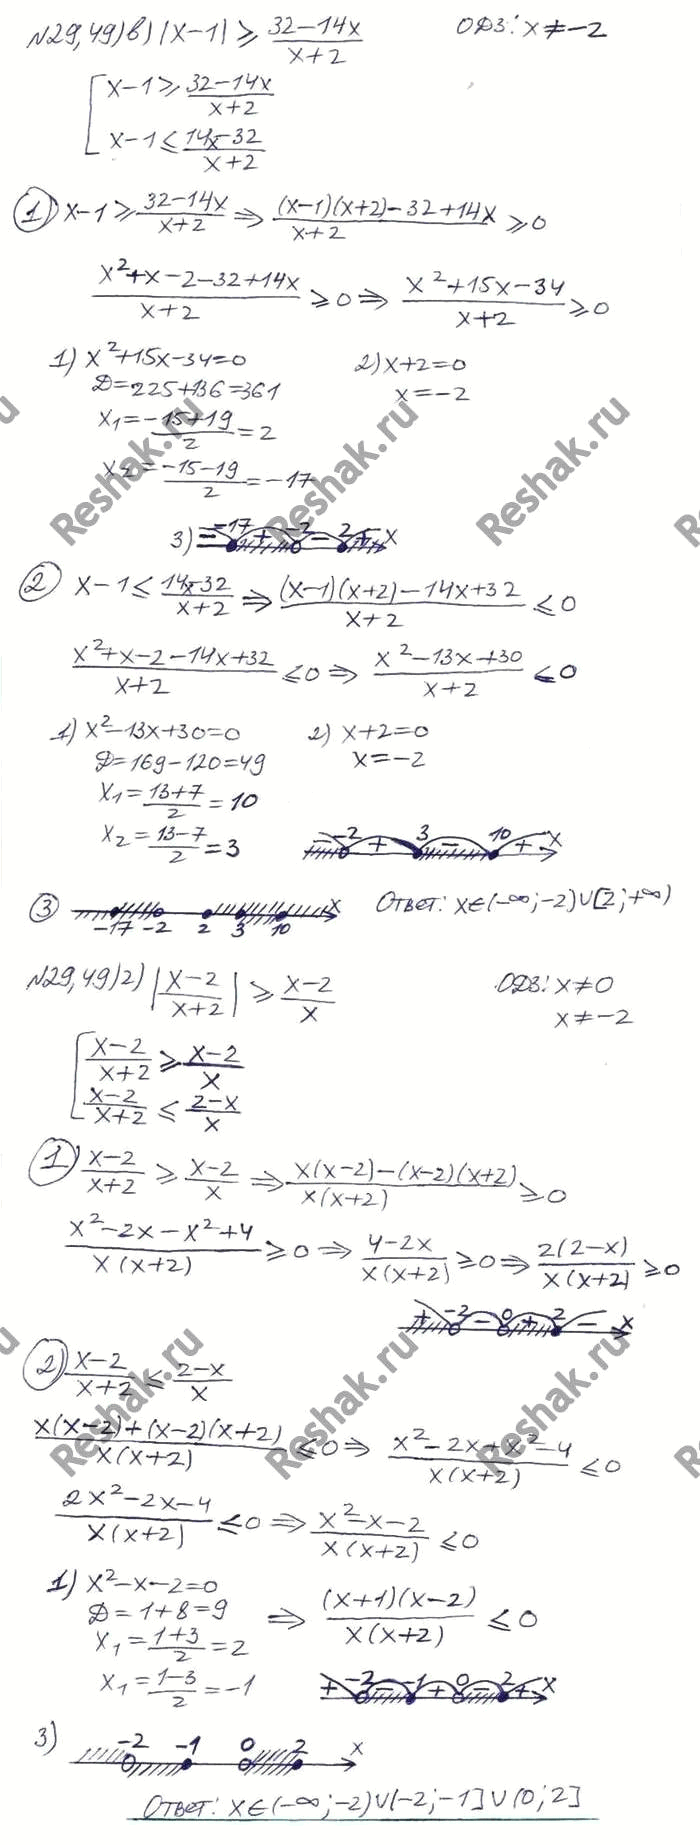 N29,49)в) |x-1| ≥ (32-14x)/(x+2)   ОДЗ: x≠-2
[ x-1 ≥ (32-14x)/(x+2)
x-1 ≤ (14x-32)/(x+2)
1) x-1 ≥ (32-14x)/(x+2) ⇒ ((x-1)(x+2)-32+14x)/(x+2) ≥ 0
(x²+x-2-32+14x)/(x+2) ≥ 0 ⇒ (x²+15x-34)/(x+2) ≥ 0
1) x²+15x-34=0   2) x+2=0
D=225+136=361   x=-2
x₁=(-15+19)/2=2
x₂=(-15-19)/2=-17
3) - -17 + -2 - 2 + x
2) x-1 ≤ (14x-32)/(x+2) ⇒ ((x-1)(x+2)-14x+32)/(x+2) ≤ 0
(x²+x-2-14x+32)/(x+2) ≤ 0 ⇒ (x²-13x+30)/(x+2) ≤ 0
1) x²-13x+30=0   2) x+2=0
D=169-120=49   x=-2
x₁=(13+7)/2=10
x₂=(13-7)/2=3   - -2 + 3 - 10 + x
3) -17 -2 2 3 10 x   Ответ: x∈(-∞;-2)∪[2;+∞)
N29,49)г) |(x-2)/(x+2)| ≥ (x-2)/x   ОДЗ: x≠0
x≠-2
[ (x-2)/(x+2) ≥ (x-2)/x
(x-2)/(x+2) ≤ (2-x)/x
1) (x-2)/(x+2) ≥ (x-2)/x ⇒ (x(x-2)-(x-2)(x+2))/(x(x+2)) ≥ 0
(x²-2x-x²+4)/(x(x+2)) ≥ 0 ⇒ (4-2x)/(x(x+2)) ≥ 0 ⇒ (2(2-x))/(x(x+2)) ≥ 0
+ -2 - 0 + 2 - x
2) (x-2)/(x+2) ≤ (2-x)/x
(x(x-2)+(x-2)(x+2))/(x(x+2)) ≤ 0 ⇒ (x²-2x+x²-4)/(x(x+2)) ≤ 0
(2x²-2x-4)/(x(x+2)) ≤ 0 ⇒ (x²-x-2)/(x(x+2)) ≤ 0
1) x²-x-2=0
D=1+8=9 ⇒ ((x+1)(x-2))/(x(x+2)) ≤ 0
x₁=(1+3)/2=2
x₁=(1-3)/2=-1   + -2 - -1 + 0 - 2 + x
3) -2 -1 0 2 x
Ответ: x∈(-∞;-2)∪(-2;-1]∪(0;2]
Reshak.ru
Reshak.ru
Reshak.ru
Reshak.ru
Reshak.ru
Reshak.ru